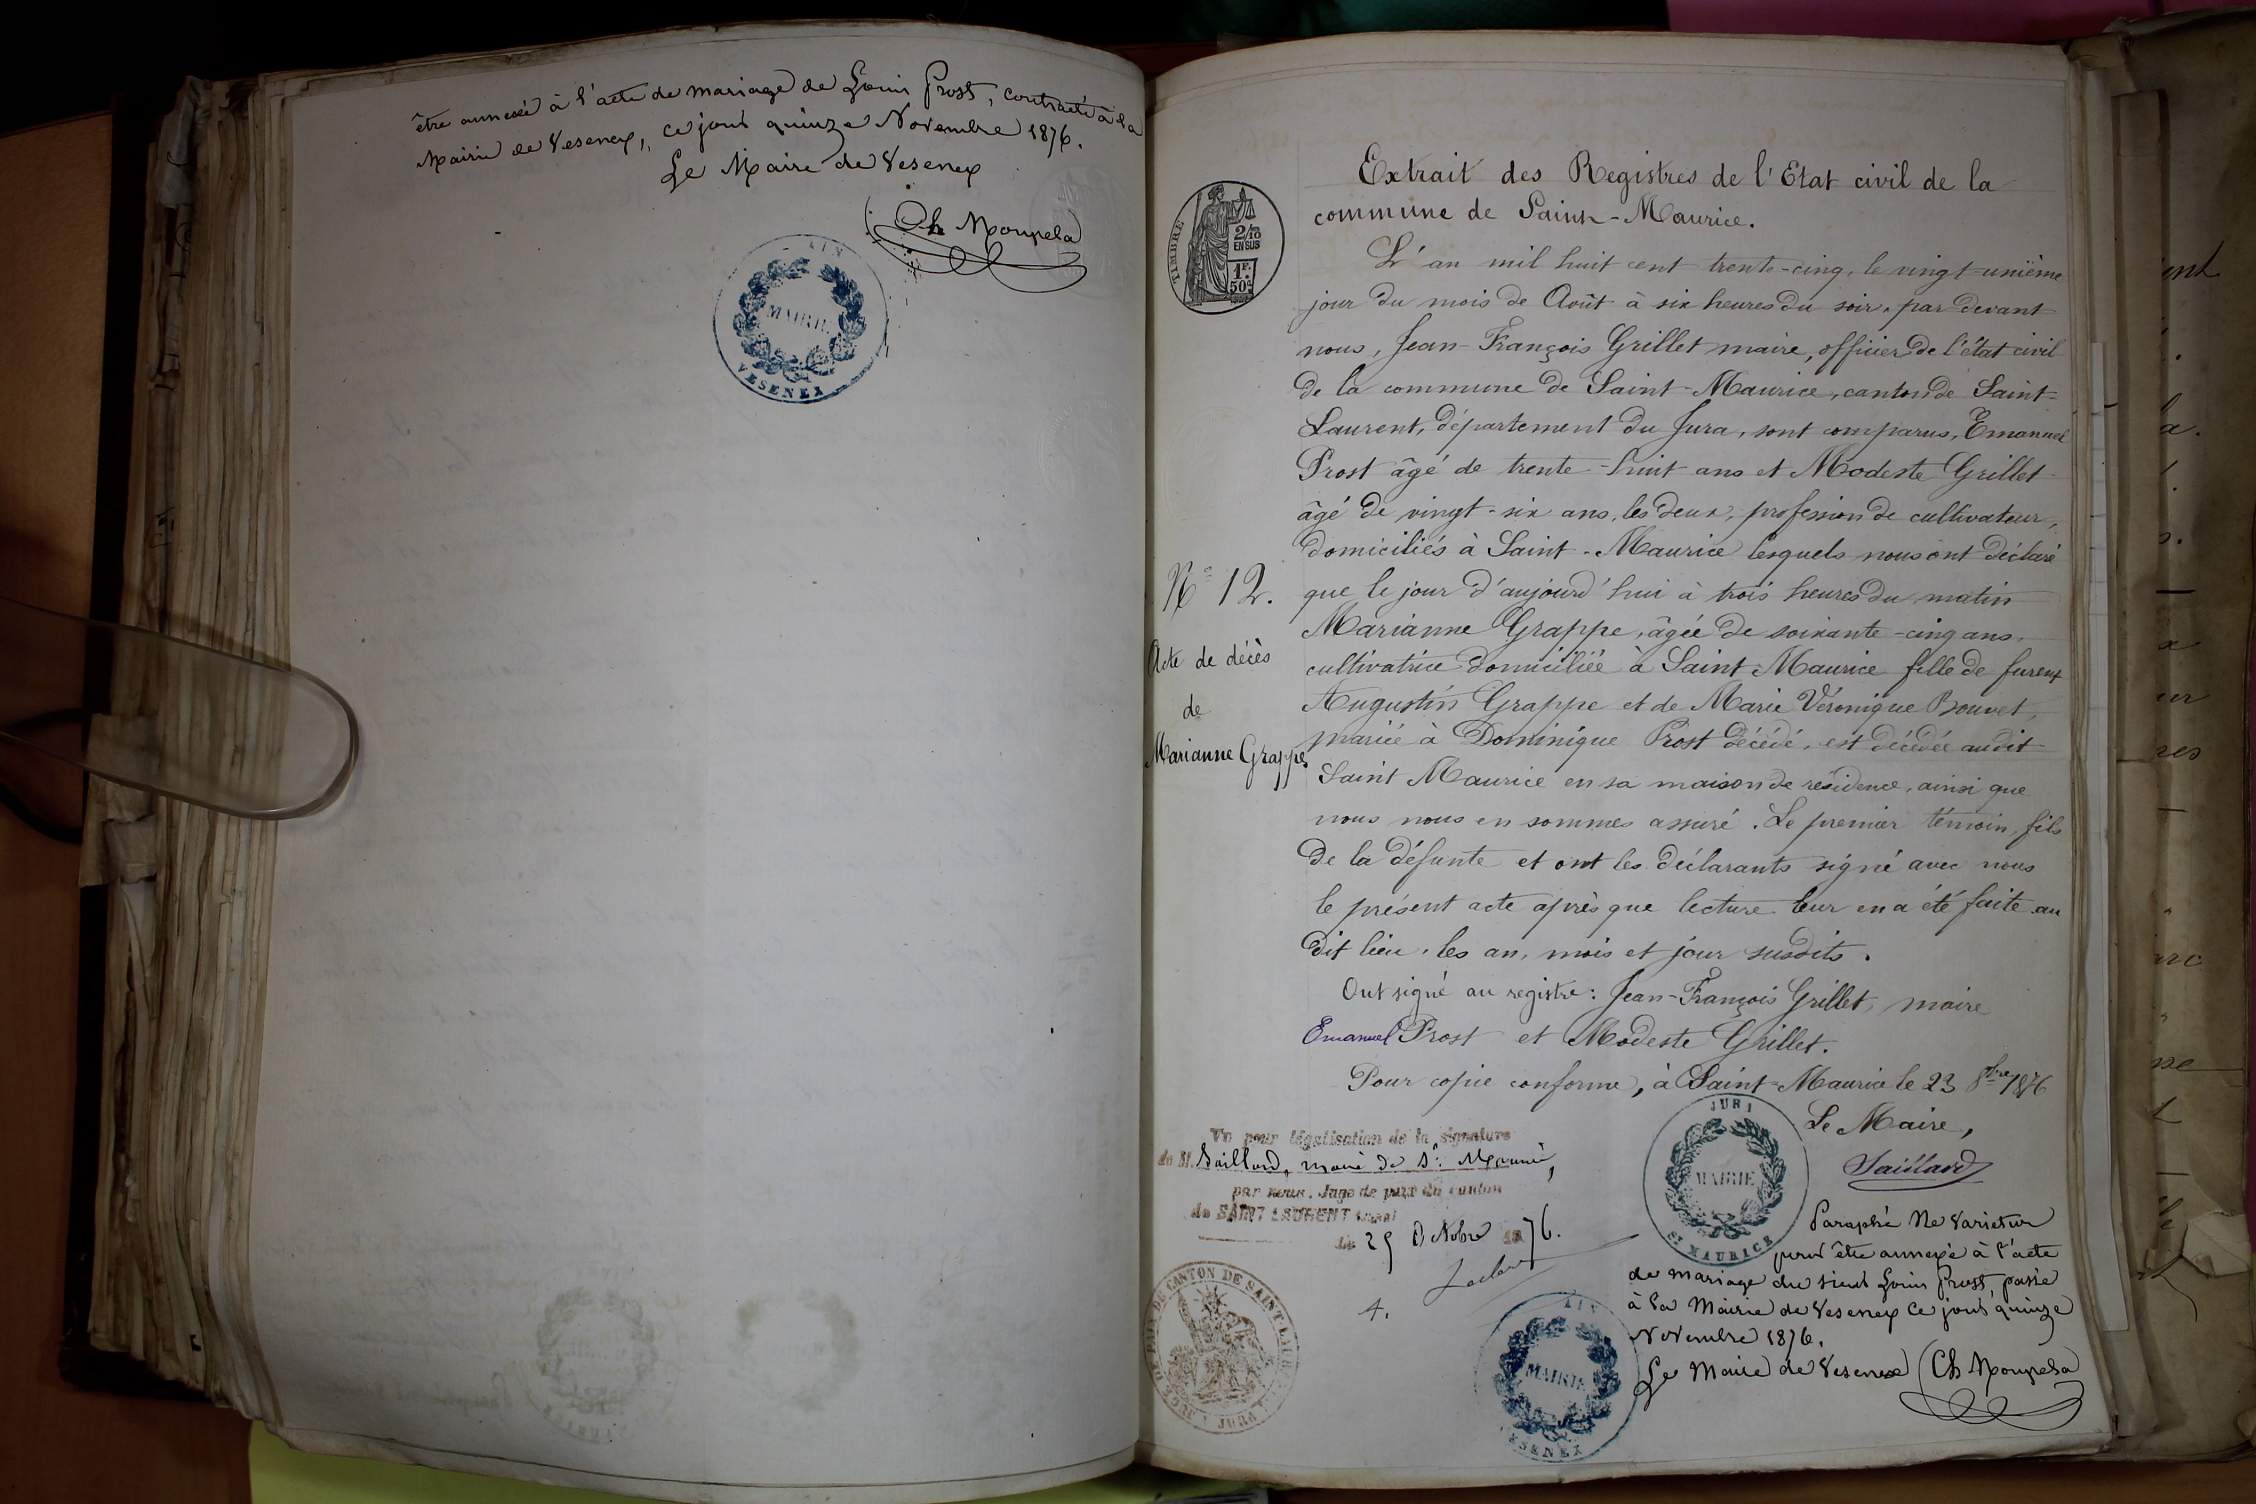 être annexé à l'acte de mariage de Louis Prost, contracté à la
Mairie de Vesenex, ce jour quinze Novembre 1876.
Le Maire de Vesenex
Ch Moupela
AIN
MAIRIE
VESENEX
Extrait des Registres de l'Etat civil de la
commune de Saint-Maurice.
TIMBRE
2/10
EN SUS
1F.
50c
L'an mil huit cent trente-cinq, le vingt-unième
jour du mois de Août à six heures du soir, par devant
nous, Jean-François Grillet maire, officier de l'état civil
de la commune de Saint-Maurice, canton de Saint-
Laurent, département du Jura, sont comparus, Emanuel
Prost âgé de trente-huit ans et Modeste Grillet
âgé de vingt-six ans, les deux, profession de cultivateur,
domiciliés à Saint-Maurice lesquels nous ont déclaré
que le jour d'aujourd'hui à trois heures du matin
Marianne Grappe, âgée de soixante-cinq ans,
cultivatrice domiciliée à Saint-Maurice fille de furent
Augustin Grappe et de Marie Véronique Bouvet,
mariée à Dominique Prost décédé, est décédée audit
Saint Maurice en sa maison de résidence, ainsi que
nous nous en sommes assuré. Le premier témoin, fils
de la défunte et ont les déclarants signé avec nous
le présent acte après que lecture leur en a été faite au
dit lieu, les an, mois et jour susdits.
N° 12.
Acte de décès
de
Marianne Grappe.
Ont signé au registre: Jean-François Grillet, maire
Emanuel Prost et Modeste Grillet.
Pour copie conforme, à Saint-Maurice le 23 8bre 1876
Le Maire,
Saillard
JURA
MAIRIE
ST MAURICE
Vu pour légalisation de la signature
de M. Saillard, maire de St Maurice,
par nous, Juge de paix du canton
de SAINT LAURENT (Jura)
Le 25 Octobre 1876.
JUGE DE PAIX DE CANTON DE SAINT LAURENT
JURA
Paraphé Ne Varietur
pour être annexé à l'acte
de mariage du sieur Louis Prost, passé
à la Mairie de Vesenex ce jour quinze
Novembre 1876.
Le Maire de Vesenex Ch Moupela
AIN
MAIRIE
VESENEX